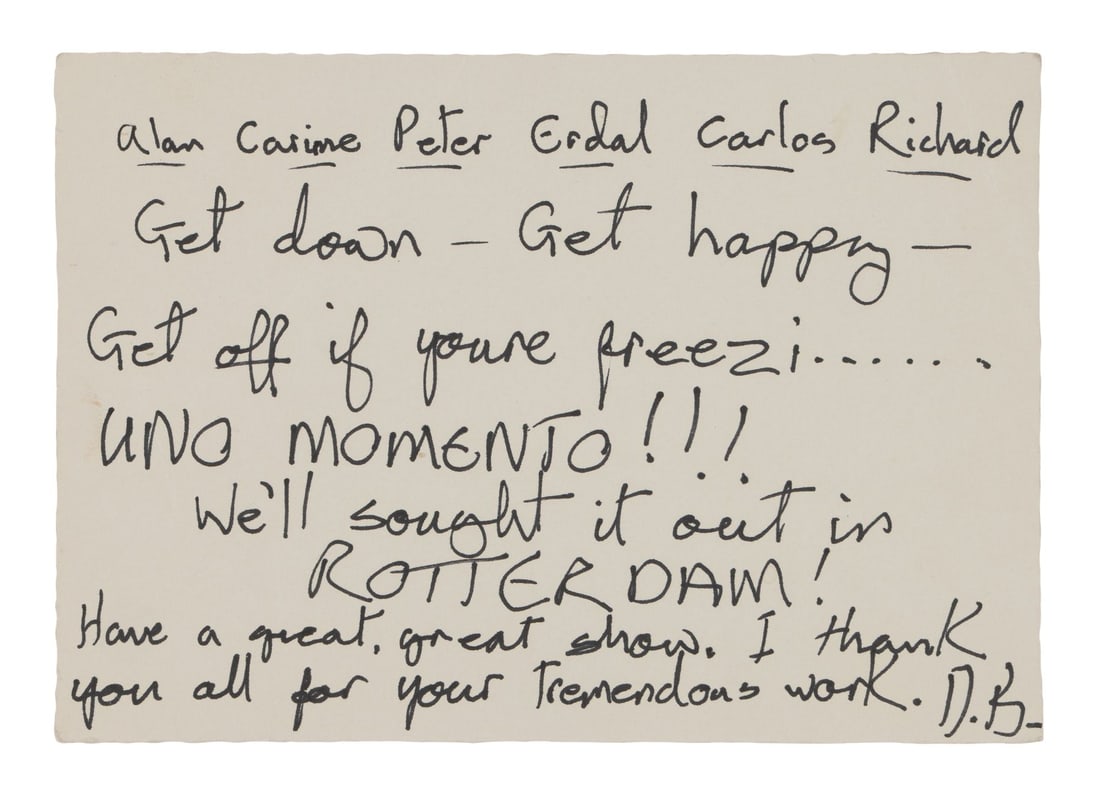 Alan Carime Peter Erdal Carlos Richard
Get down – Get happy –
Get off if youre freezi......
UNO MOMENTO!!!
We'll sought it out in
ROTTERDAM!
Have a great, great show. I thank
you all for your tremendous work. D.B-